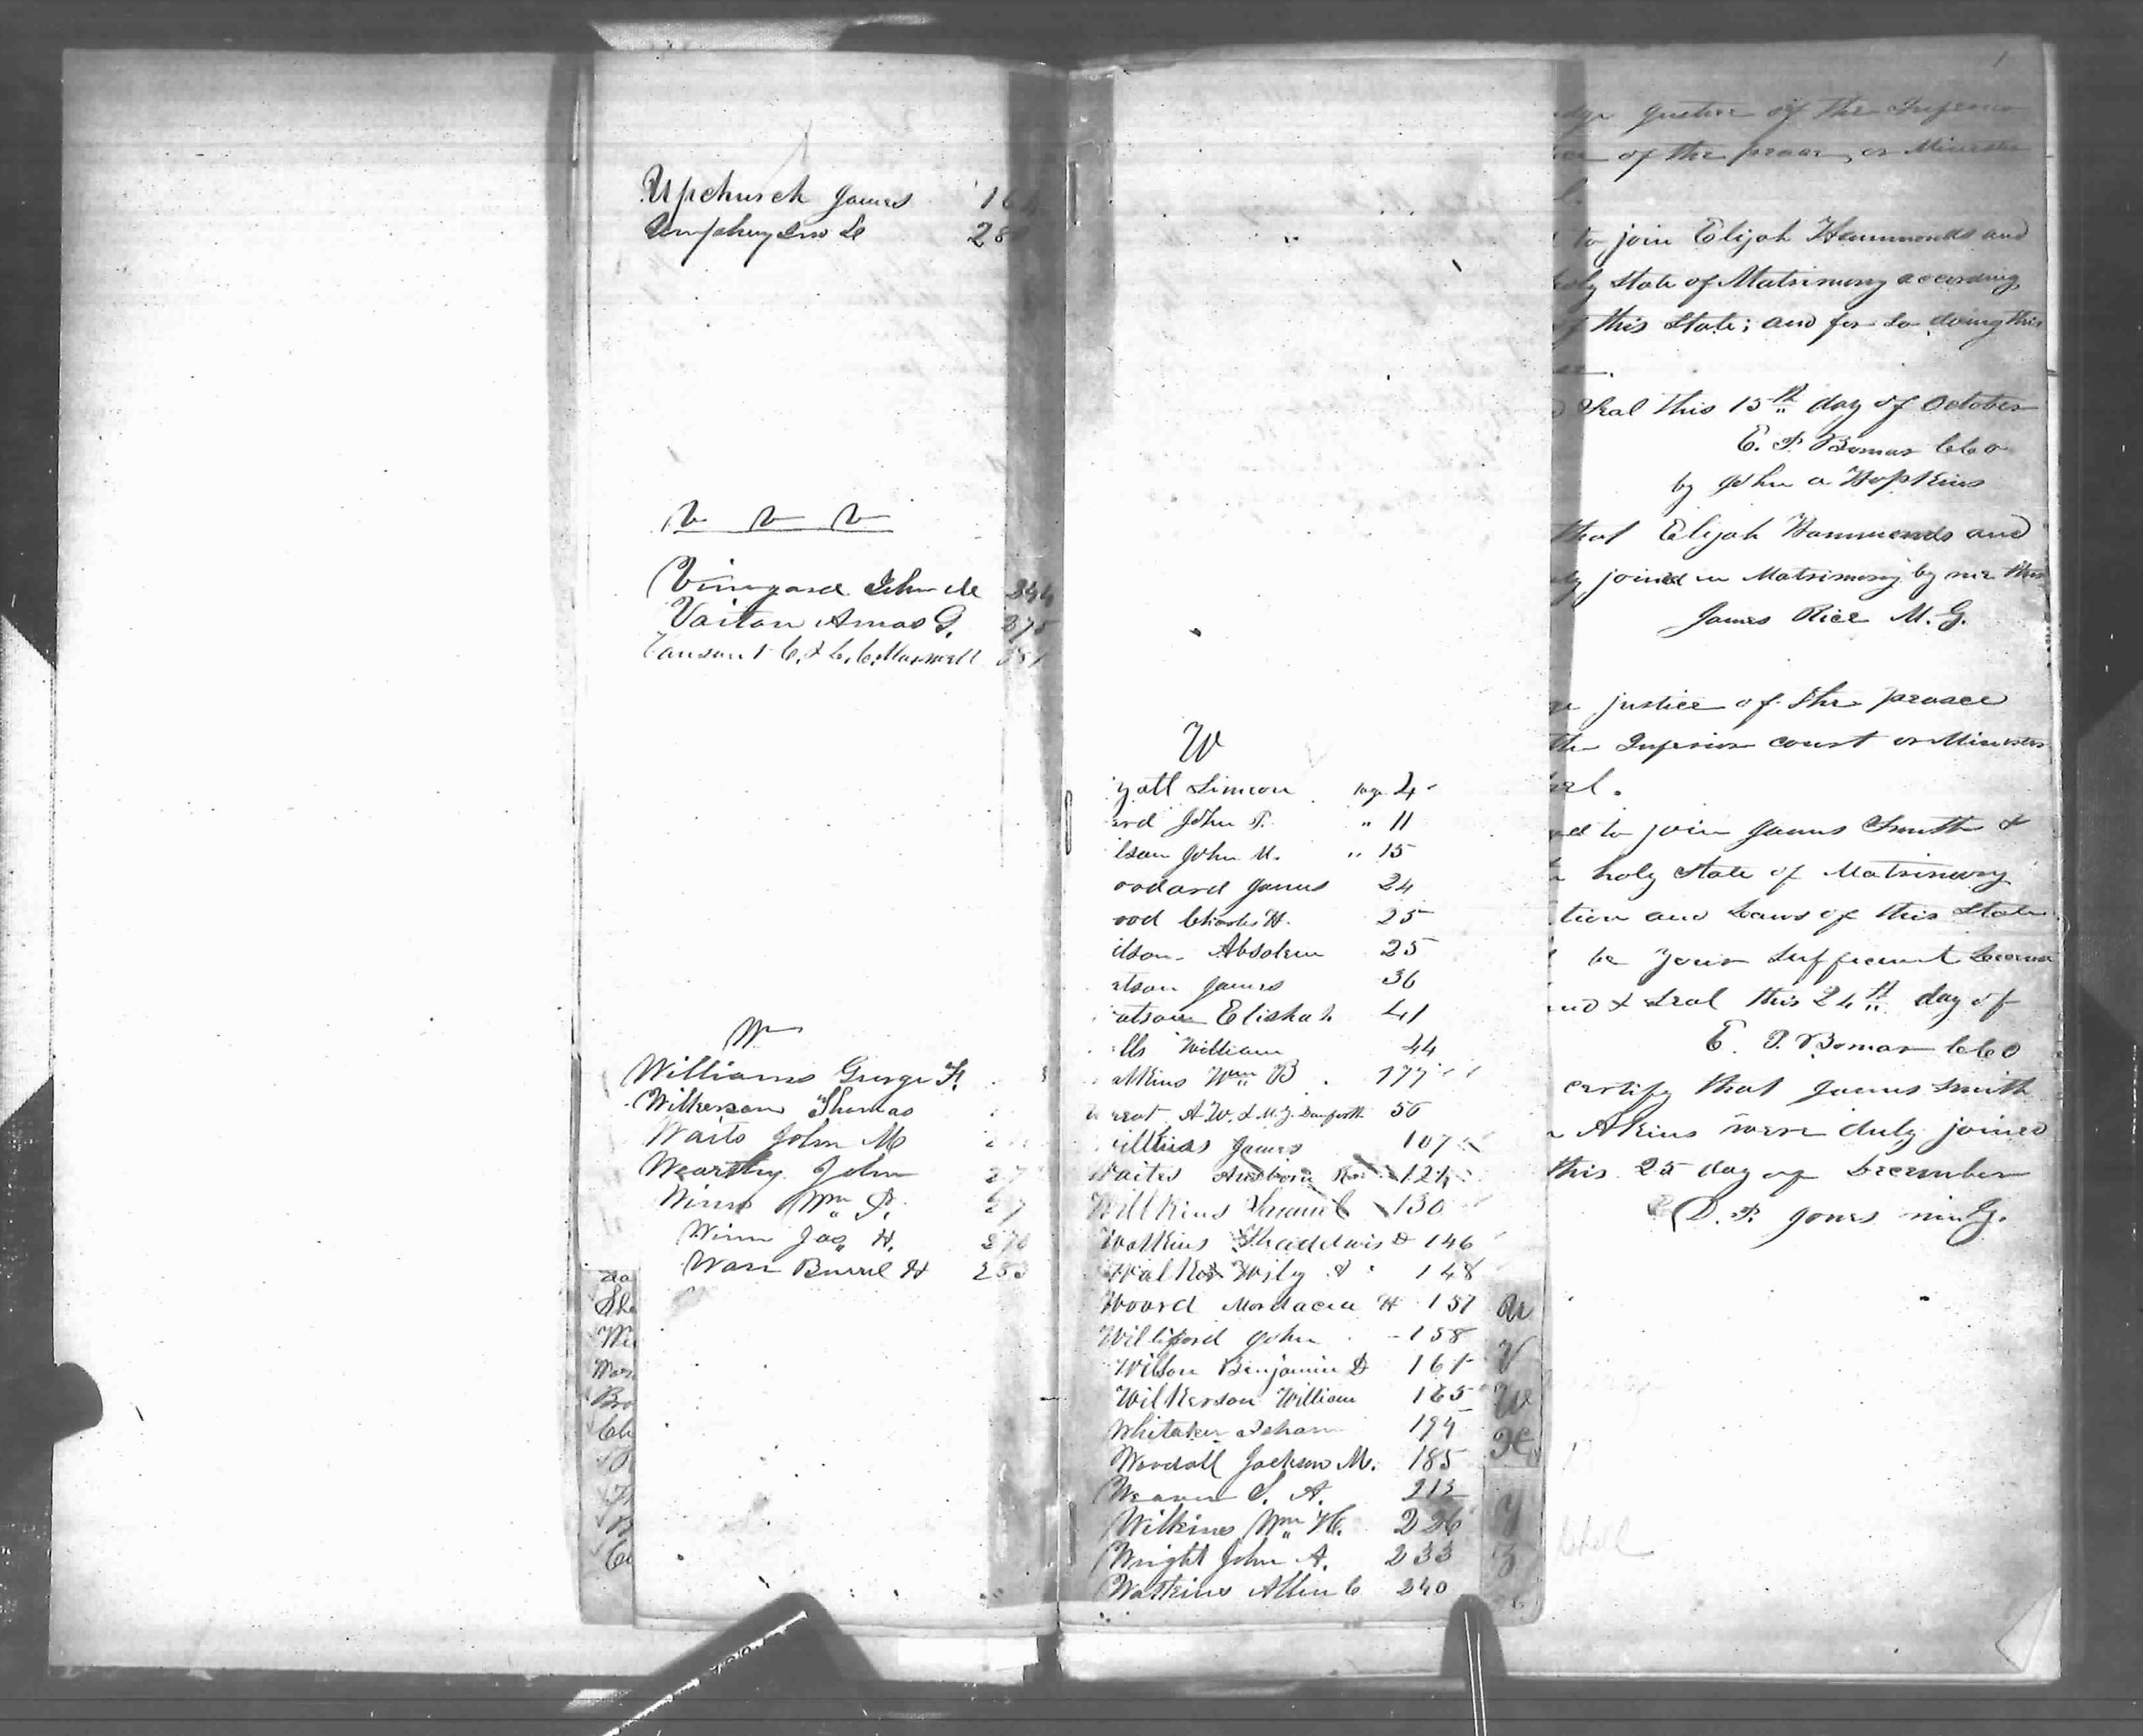 Upchurch James 16
Umphrey Jno
V V V
Vinyard John M 344
Vaiton Amos G. 375
C. & C. C. Maxwell
W
Williams George F.
Wilkerson Thomas
Waits John M
Wearthy John 27
Winn Wm P. 27
Winn Jas H. 270
Warr Burrel H 253
Sha
We
War
Bro
Ch
W
yatt Simeon page 4
ard John T. " 11
ilson John M. " 15
oodard James 24
ood Charles H. 25
ilson Absolem 25
atson James 36
atson Elisha 41
ells William 44
atkins Wm B 177
A. W. & M. J. Danforth 56
illkins James 107
Waites 124
Willkins Samuel 130
Watkins 146
Walker Wily A 148
Woard Mordacia H 157
Williford John 158
Wilson Benjamin D 161
Wilkerson William 165
Whitaker 194
Woodall Jackson M. 185
Weaver S. A. 212
Wilkins Wm H. 226
Wright John A. 233
Watkins Allen C 240
U
V
W
X
Y
Z
1
dge Justice of the Inferior
of the peace, or Minister
to join Elijah Hammonds and
holy State of Matrimony according
of this State; and for so doing this
Seal this 15th day of October
E. P. Bomar CCO
by John A Hopkins
that Elijah Hammonds and
ly joined in Matrimony by me this
James Rice M. G.
ge justice of the peace
the Inferior court or Minister
pel.
ed to join James Smith &
n holy State of Matrimony
tion and Laws of this State
be your sufficient License
and & Seal this 24th day of
E. P. Bomar CCO
certify that James Smith
Akins were duly joined
this 25 day of December
D. P. Jones